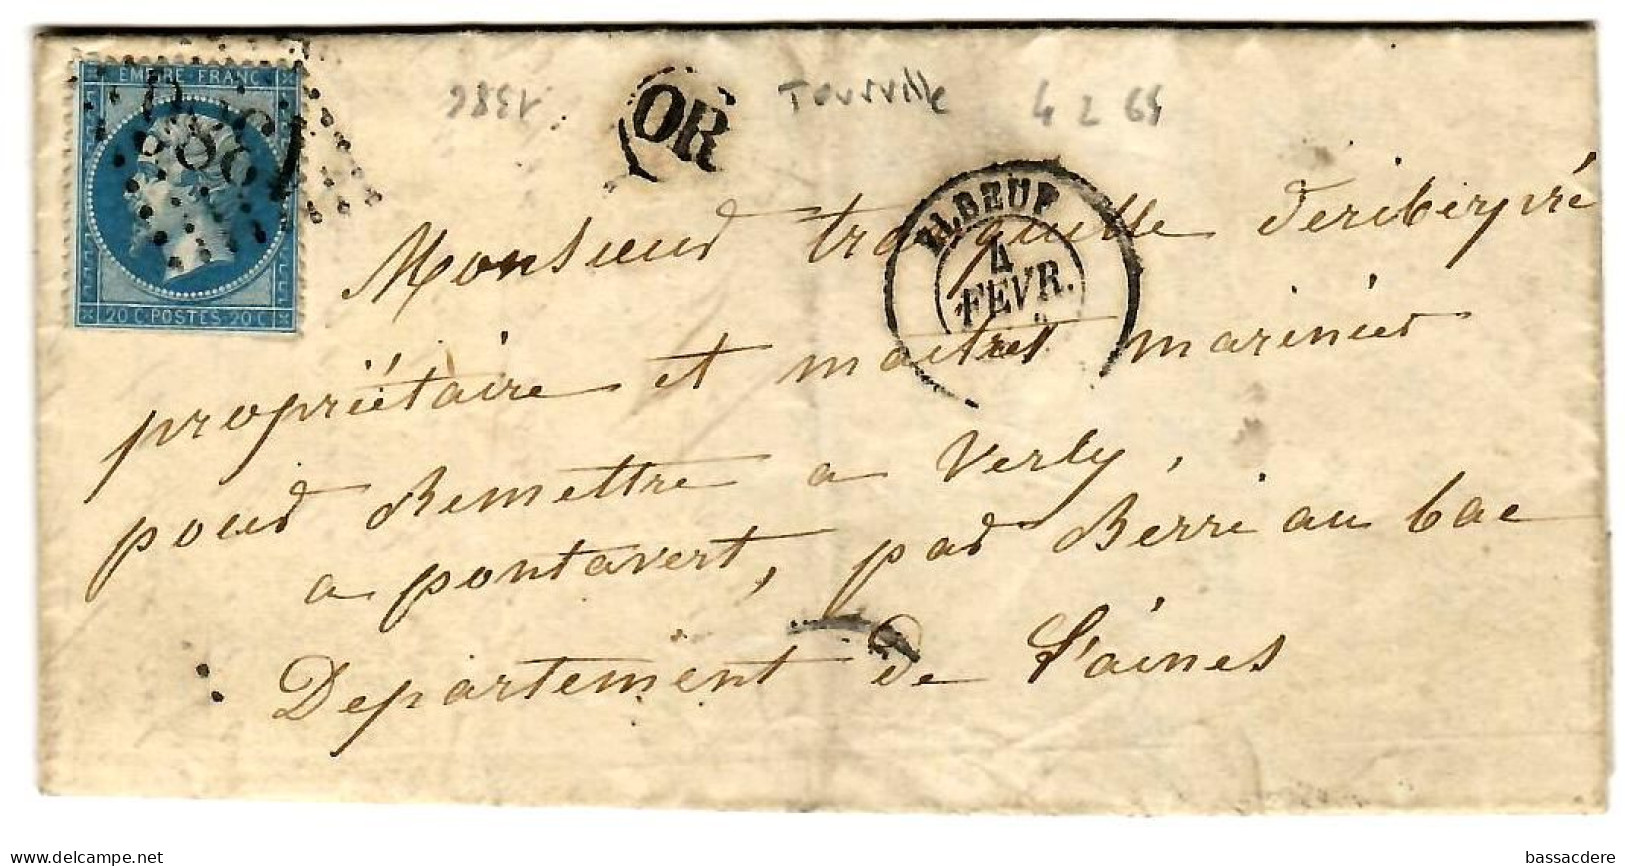 EMPIRE FRANC
1386
20 C. POSTES 20 C
1386
OR
Tourville
4 2 64
ELBEUF
4
FEVR.
Monsieur tranquille
propriétaire et maitre marinier
pour Remettre a Verly,
a pontavert, par Berri au bac
Departement de L'aines
delcampe.net
bassacdere